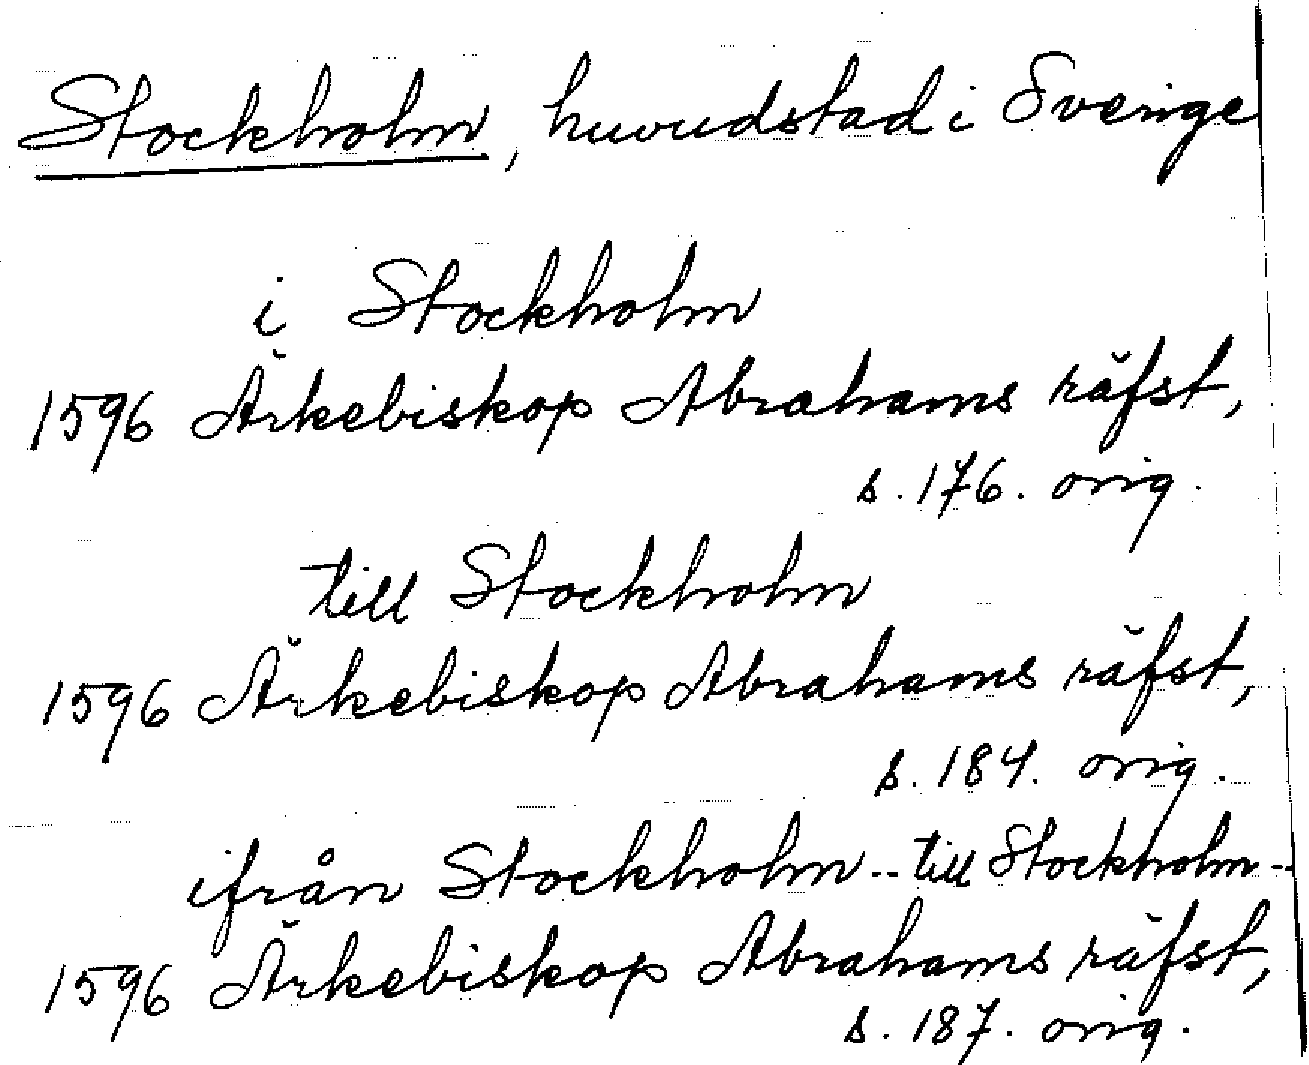 Stockholm, huvudstad i Sverige
i Stockholm
1596 Ärkebiskop Abrahams räfst,
s. 176. orig.
till Stockholm
1596 Ärkebiskop Abrahams räfst,
s. 184. orig.
ifrån Stockholm -- till Stockholm --
1596 Ärkebiskop Abrahams räfst,
s. 187. orig.